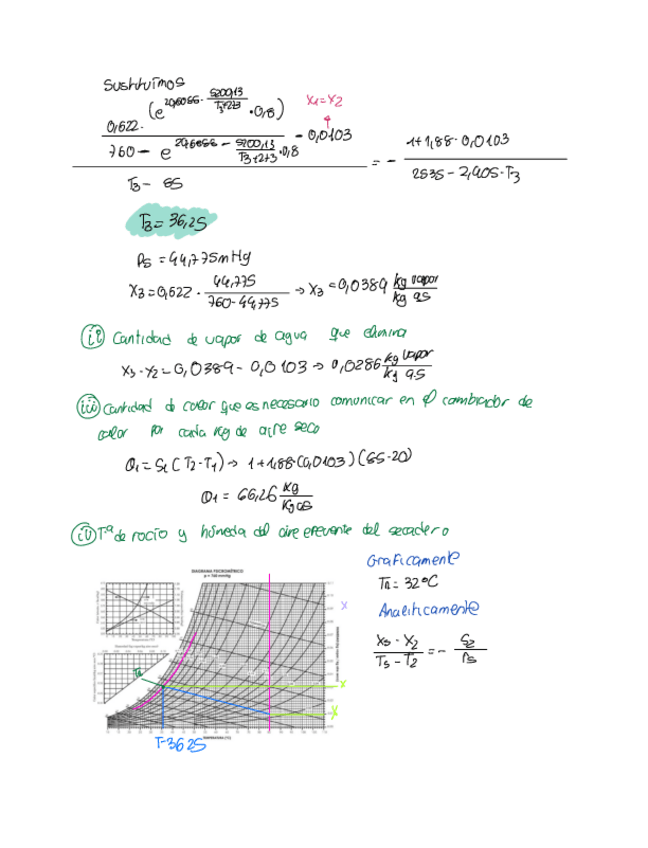 Sustituimos
x1=x2
0,622 · (e^20,6055 - 5200,13/T3+273 · 0,8) / 760 - e^20,6055 - 5200,13/T3+273 · 0,8 - 0,0103 / T3 - 65 = - 1+1,88·0,0103 / 2535 - 2,905·T3
T3 = 36,25
Ps = 44,775 mmHg
X3 = 0,622 · 44,775 / 760-44,775 → X3 = 0,0389 kg vapor / kg as
ii) Cantidad de vapor de agua que elimina
X3 - X2 = 0,0389 - 0,0103 → 0,0286 kg vapor / kg a.s
iii) Cantidad de calor que es necesario comunicar en el cambiador de
calor por cada kg de aire seco
Q1 = S1 (T2-T1) → 1+1,88(0,0103) (65-20)
Q1 = 66,26 kg / kg as
iv) Tª de rocío y húmeda del aire efluente del secadero
Graficamente
TR = 32ºC
Analíticamente
X3 - X2 / T3 - T2 = - S2 /
DIAGRAMA PSICROMÉTRICO
p = 760 mmHg
TR
x
x
TEMPERATURA (ºC)
T=36 25